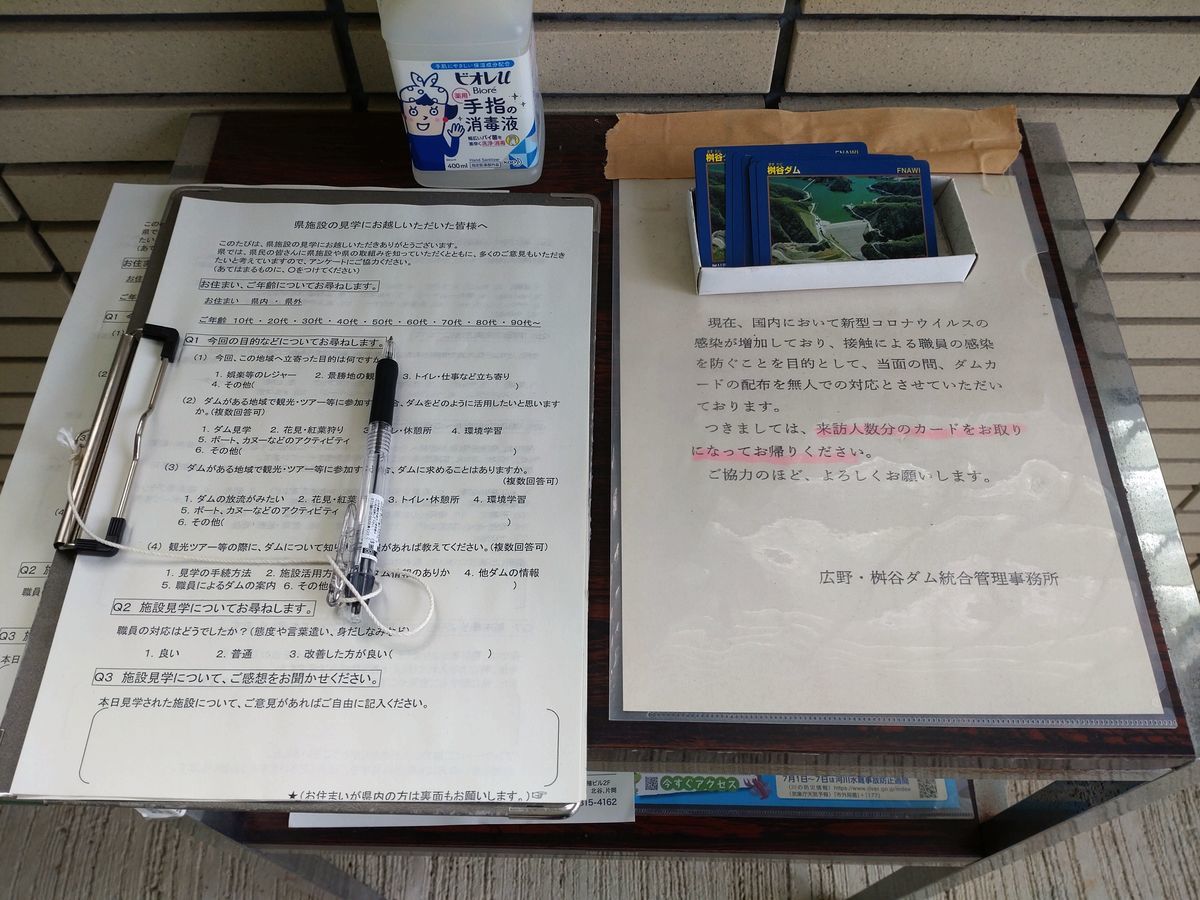 手肌にやさしい保湿成分配合
ビオレu
Bioré
薬用
手指の
消毒液
幅広いバイ菌を
素早く洗浄・消毒
400ml
Hand Sanitizer
県施設の見学にお越しいただいた皆様へ
このたびは、県施設の見学にお越しいただきありがとうございます。
県では、県民の皆さんに県施設や県の取組みを知っていただくとともに、多くのご意見もいただき
たいと考えていますので、アンケートにご協力ください。
(あてはまるものに、○をつけてください)
お住まい、ご年齢についてお尋ねします。
お住まい 県内 ・ 県外
ご年齢 10代 ・ 20代 ・ 30代 ・ 40代 ・ 50代 ・ 60代 ・ 70代 ・ 80代 ・ 90代～
Q1 今回の目的などについてお尋ねします。
(1) 今回、この地域へ立寄った目的は何ですか
1. 娯楽等のレジャー 2. 景勝地の観 3. トイレ・仕事など立ち寄り
4. その他( )
(2) ダムがある地域で観光・ツアー等に参加す 合、ダムをどのように活用したいと思います
か。(複数回答可)
1. ダム見学 2. 花見・紅葉狩り レ・休憩所 4. 環境学習
5. ボート、カヌーなどのアクティビティ
6. その他( )
(3) ダムがある地域で観光・ツアー等に参加す 合、ダムに求めることはありますか。
(複数回答可)
1. ダムの放流がみたい 2. 花見・紅葉 3. トイレ・休憩所 4. 環境学習
5. ボート、カヌーなどのアクティビティ
6. その他( )
(4) 観光ツアー等の際に、ダムについて知り があれば教えてください。(複数回答可)
1. 見学の手続方法 2. 施設活用方 ダム情報のありか 4. 他ダムの情報
5. 職員によるダムの案内 6. その他(
Q2 施設見学についてお尋ねします。
職員の対応はどうでしたか?(態度や言葉遣い、身だしなみなど)
1. 良い 2. 普通 3. 改善した方が良い( )
Q3 施設見学について、ご感想をお聞かせください。
本日見学された施設について、ご意見があればご自由に記入ください。
★(お住まいが県内の方は裏面もお願いします。)☞
桝谷
桝谷ダム
FNAWI
現在、国内において新型コロナウイルスの
感染が増加しており、接触による職員の感染
を防ぐことを目的として、当面の間、ダムカ
ードの配布を無人での対応とさせていただい
ております。
つきましては、来訪人数分のカードをお取り
になってお帰りください。
ご協力のほど、よろしくお願いします。
広野・桝谷ダム統合管理事務所
今すぐアクセス
7月1日～7日は河川水難事故防止週間
315-4162